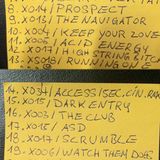 8. X016/PROSPECT
9. X013/THE NAVIGATOR
10. X004/KEEP YOUR LOVE
11. X005/ACID ENERGY
12. X017/HIGH STRING BITCH
13. X018/RUNNING ON E
14. X034/ACCESS (SEC.
15. X015/DARK ENTRY
16. X003/THE CLUB
17. X015/ASD
18. X017/SCRUMBLE
19. X006/WATCH THEM DOGS